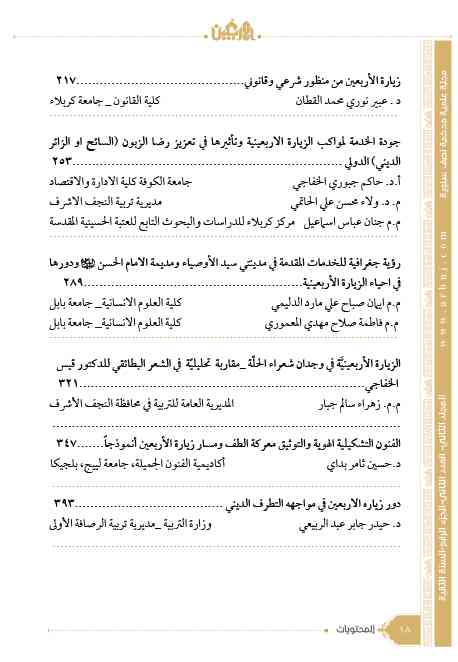 الأربعين
زيارة الأربعين من منظور شرعي وقانوني........................................٢١٧
د . عبير نوري محمد القطان كلية القانون _ جامعة كربلاء
جودة الخدمة لمواكب الزيارة الاربعينية وتأثيرها في تعزيز رضا الزبون (السائح او الزائر
الديني) الدولي ................................................................٢٥٣
أ.د. حاكم جبوري الخفاجي جامعة الكوفة كلية الادارة والاقتصاد
م. د. ولاء محسن علي الحاتمي مديرية تربية النجف الاشرف
م.م جنان عباس اسماعيل مركز كربلاء للدراسات والبحوث التابع للعتبة الحسينية المقدسة
رؤية جغرافية للخدمات المقدمة في مدينتي سيد الأوصياء ومديمة الامام الحسن ودورها
في احياء الزيارة الأربعينية........................................................٢٨٩
م.م ايمان صباح علي مارد الدليمي كلية العلوم الانسانية_ جامعة بابل
م.م فاطمة صلاح مهدي المعموري كلية العلوم الانسانية_ جامعة بابل
الزيارة الأربعينيَّة في وجدان شعراء الحلّة _مقاربة تحليليّة في الشعر البطائقي للدكتور قيس
الخفاجي....................................................................٣٢١
م.م. زهراء سالم جبار المديرية العامة للتربية في محافظة النجف الأشرف
الفنون التشكيلية الهوية والتوثيق معركة الطف ومسار زيارة الأربعين أنموذجاً.......٣٤٧
د.حسين ثامر بداي أكاديمية الفنون الجميلة، جامعة لييج، بلجيكا
دور زياره الاربعين في مواجهه التطرف الديني ....................................٣٩٣
د. حيدر جابر عبد الربيعي وزارة التربية _مديرية تربية الرصافة الأولى
مجلة علمية محكمة نصف سنوية
www.arbnj.com
المجلد الثاني- العدد الثاني-الجزء الرابع-السنة الثانية
١٨
المحتويات